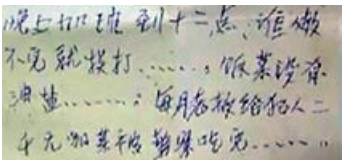 晚上加班到十二点，谁做
不完就挨打……，饭菜没有
油盐……；每月老板给犯人二
千元加菜干被警察吃完……。